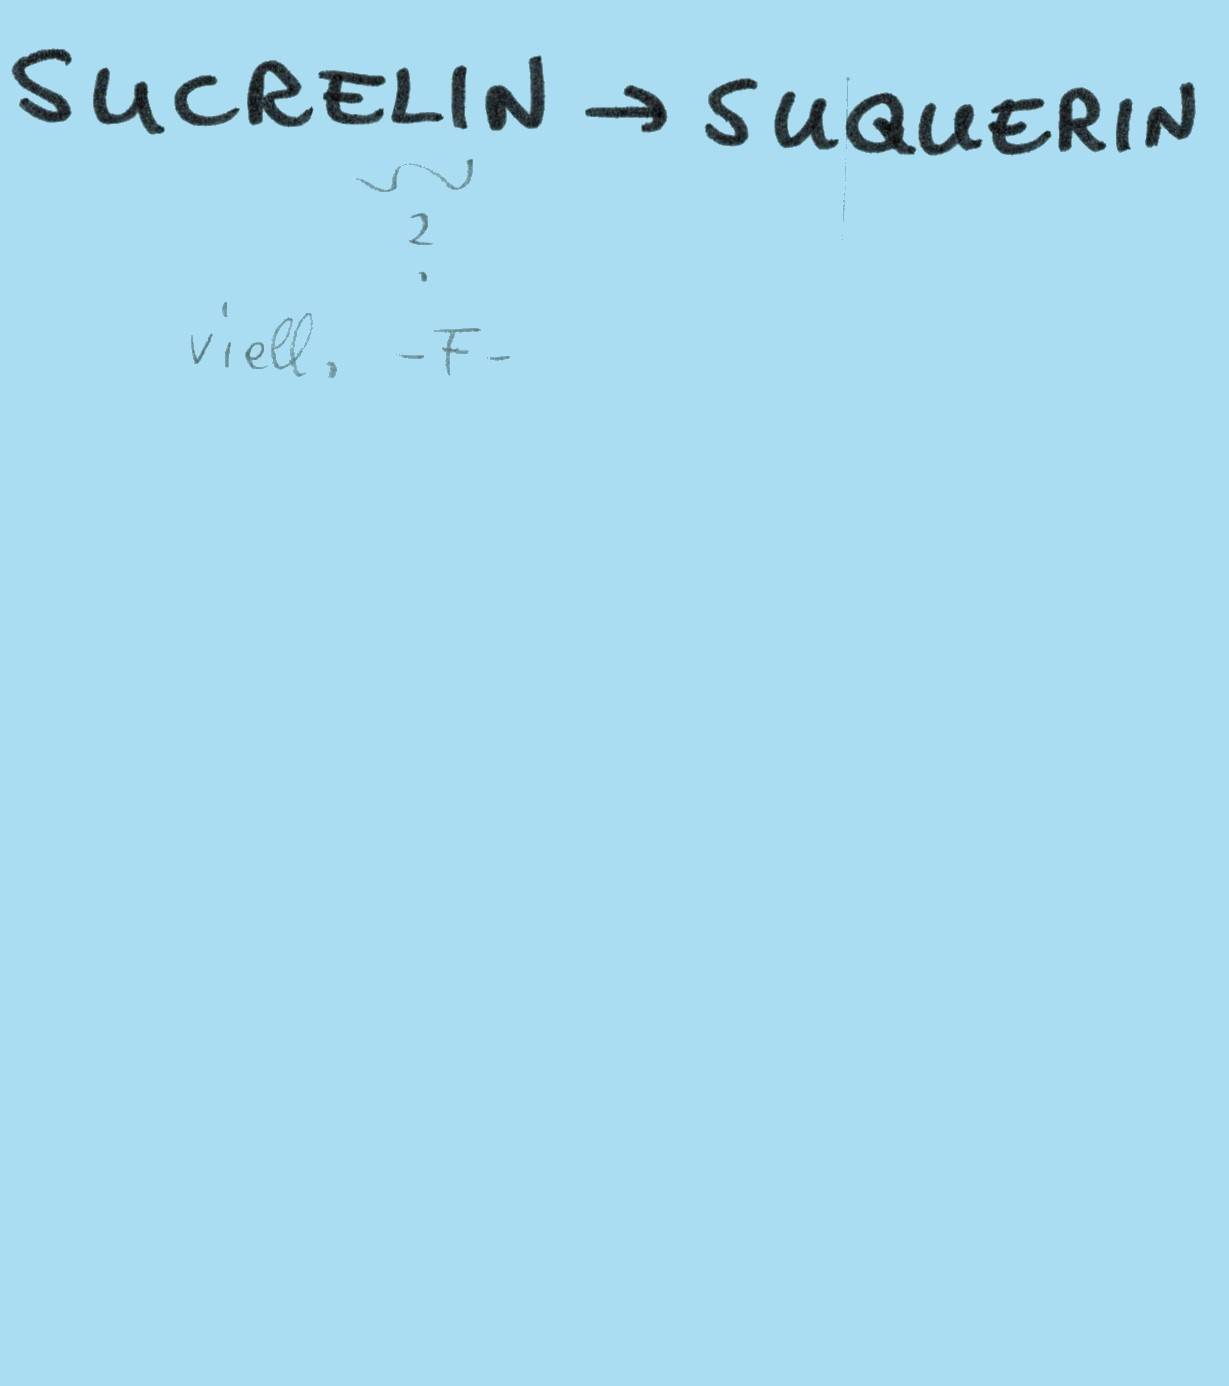 SUCRELIN → SUQUERIN
?
viell. -F-